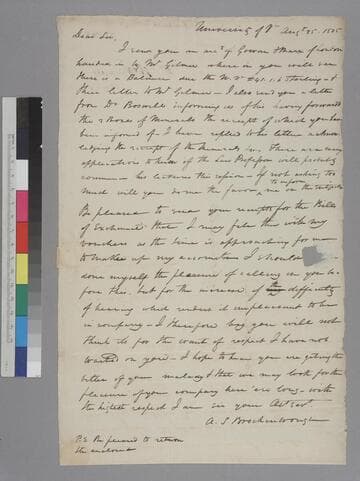 University of Va Aug. 25. 1825
Dear Sir,
I send you an acct of Gowan & Marx of London
handed in by Mr Gilmer wherein you will see
there is a Balance due the U. Va £41.1.6 Sterling &
their letter to Mr Gilmer – I also send you a letter
from Dr informing us of his having forwarded
the 2 Boxes of Minerals the receipt of which you have
been informed of – I have replied to his letter acknow
ledging the receipt of the Minerals &c. There are many
applications to know if the Law Professor will probably
commence his lectures this – if not asking too
much will you do me the favour to inform me on the subject
Be pleased to send your receipt for the Bills
of Exchange that I may file them with my
vouchers as the time is approaching for me
to make up my accounts – I should
done myself the pleasure of calling on you be
fore this, but for the increase of my difficulty
of hearing which renders it unpleasant to be
in company – I therefore beg you will not
think it for the want of respect I have not
waited on you – I hope to hear you are getting the
better of your malady & that we may look for the
pleasure of your company here ere long – with
the highest respect I am sir your Obt Sevt
A. S Brockenbrough
P.S. Be pleased to return
the enclosed